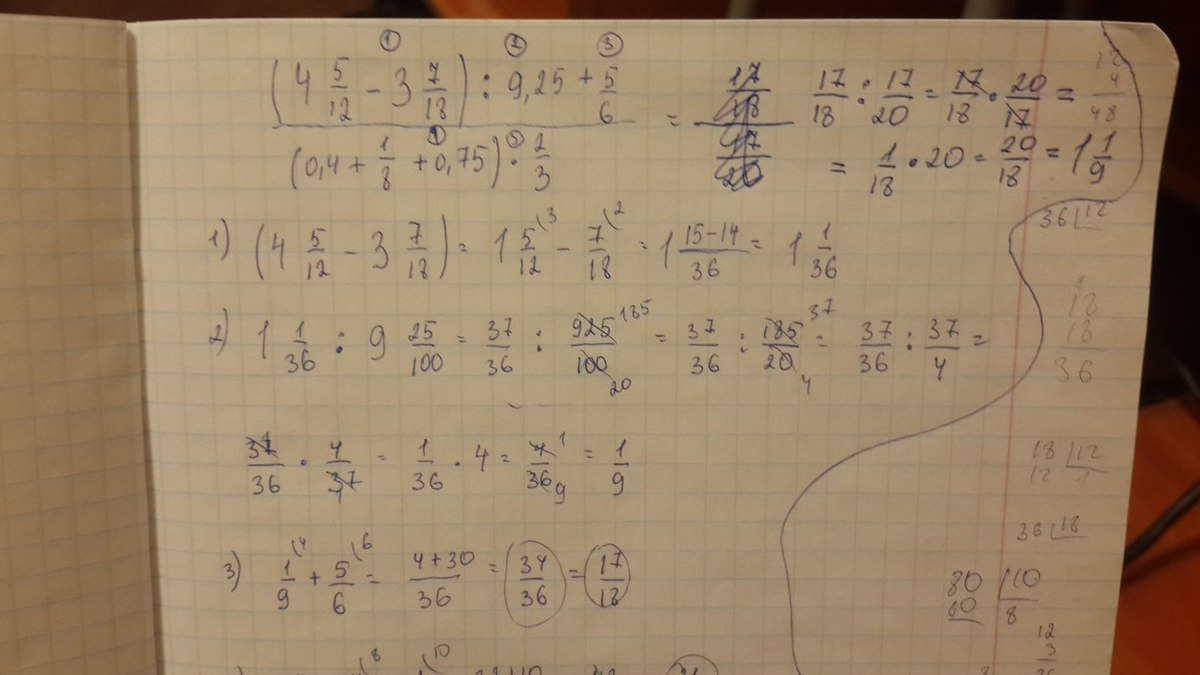 ① ② ③
(4 5/12 − 3 7/18) : 9,25 + 5/6
(0,4 + 1/8 + 0,75) · 2/3
=
17/18 : 17/20 = 17/18 · 20/17 =
= 1/18 · 20 = 20/18 = 1 1/9
12
4
48
1) (4 5/12 − 3 7/18) = 1 5/12 (3 − 7/18 (2 = 1 15−14/36 = 1 1/36
36 12
2) 1 1/36 : 9 25/100 = 37/36 : 925/100 185 20 = 37/36 : 185/20 37 4 = 37/36 : 37/4 =
18
18
36
37/36 · 4/37 = 1/36 · 4 = 4/36 1 9 = 1/9
18 12
12 1
36 18
3) 1/9 (4 + 5/6 (6 = 4+30/36 = 34/36 = 17/18
80 10
80 8
12
3
8 10